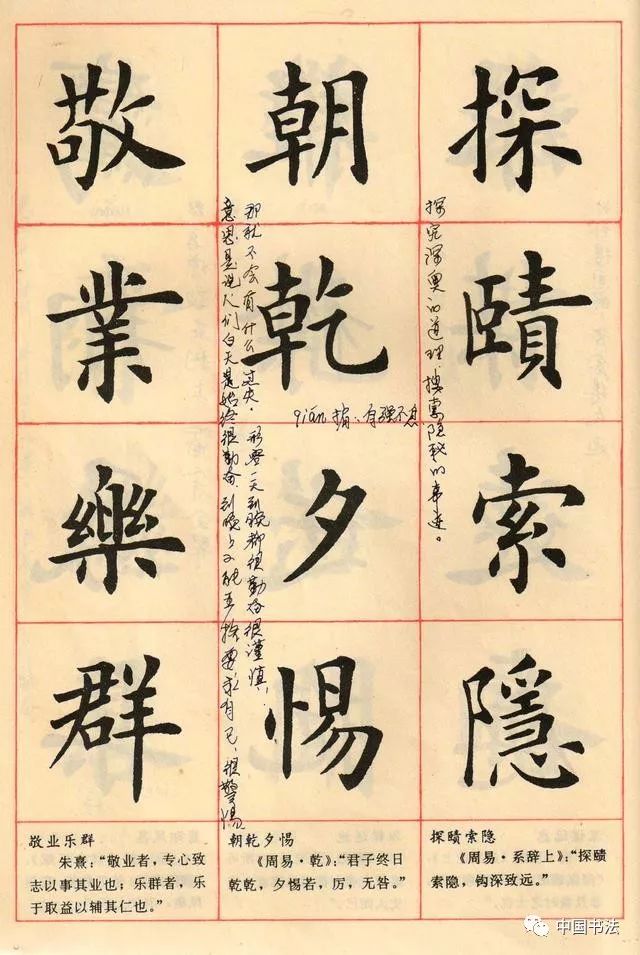 探賾索隱
朝乾夕惕
敬業樂群
探究深奥的道理、搜索隐秘的事迹。
qián 指、自强不息
意思是说人们白天是始终很勤奋、到晚上又能
那就不会有什么过失。形容一天到晚都很勤奋很谨慎
敬业乐群
朱熹：“敬业者，专心致
志以事其业也；乐群者，乐
于取益以辅其仁也。”
朝乾夕惕
《周易·乾》：“君子终日
乾乾，夕惕若，厉，无咎。”
探赜索隐
《周易·系辞上》：“探赜
索隐，钩深致远。”
中国书法